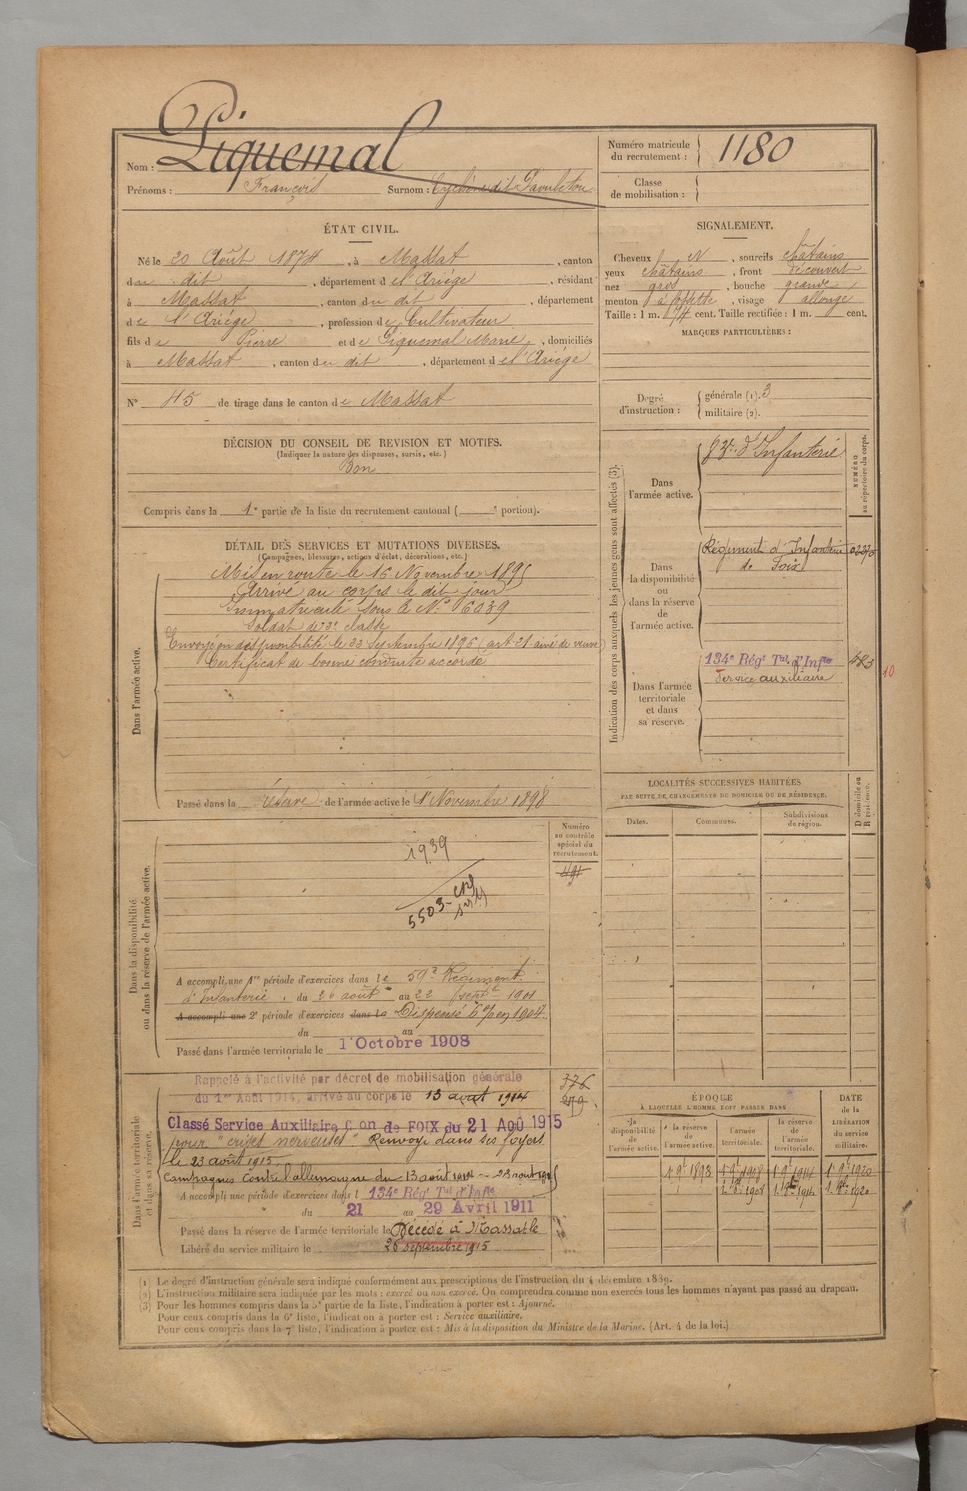 Nom : Piquemal
Prénoms : François Surnom : dit Paouleton
Numéro matricule du recrutement : 1180
Classe de mobilisation :
ÉTAT CIVIL.
Né le 20 Août 1874, à Massat, canton
du dit, département de l'Ariège, résidant
à Massat, canton du dit, département
de l'Ariège, profession de Cultivateur
fils de Pierre et de Piquemal Marie, domiciliés
à Massat, canton du dit, département de l'Ariège
N° 45 de tirage dans le canton de Massat
SIGNALEMENT.
Cheveux N, sourcils châtains
yeux châtains, front découvert
nez gros, bouche grande,
menton à fossette, visage allongé
Taille : 1 m. 674 cent. Taille rectifiée : 1 m. cent.
MARQUES PARTICULIÈRES :
Degré d'instruction :
générale (1). 3
militaire (2).
DÉCISION DU CONSEIL DE REVISION ET MOTIFS.
(Indiquer la nature des dispenses, sursis, etc.)
Bon
Compris dans la 1e partie de la liste du recrutement cantonal ( portion).
DÉTAIL DES SERVICES ET MUTATIONS DIVERSES.
(Campagnes, blessures, actions d'éclat, décorations, etc.)
Dans l'armée active.
Mis en route le 16 Novembre 1895
Arrivé au corps le dit jour
Immatriculé sous le N° 6039
Soldat de 2e classe
Envoyé en disponibilité le 22 Septembre 1896 (art 21 ainé de veuve)
Certificat de bonne conduite accordé
Passé dans la réserve de l'armée active le 1er Novembre 1898
Indication des corps auxquels les jeunes gens sont affectés (3).
NUMÉRO au répertoire du corps.
Dans l'armée active.
83e d'Infanterie
Dans la disponibilité ou dans la réserve de l'armée active.
Régiment d'Infanterie
de Foix
Dans l'armée territoriale et dans sa réserve.
134e Régt Tal d'Infie
Service auxiliaire
583
10
LOCALITÉS SUCCESSIVES HABITÉES
PAR SUITE DE CHANGEMENTS DE DOMICILE OU DE RÉSIDENCE.
Dates. Communes. Subdivisions de région.
D domicile ou R résidence.
Dans la disponibilité ou dans la réserve de l'armée active.
Numéro au contrôle spécial du recrutement.
1939
491
5503
A accompli une 1re période d'exercices dans le 59e Régiment
d'Infanterie, du 26 août au 22 septe 1901
A accompli une 2e période d'exercices dans le Dispensé en 1904
du au
Passé dans l'armée territoriale le 1 Octobre 1908
Dans l'armée territoriale et dans sa réserve.
Rappelé à l'activité par décret de mobilisation générale
du 1er Août 1914, arrivé au corps le 13 août 1914
376
279
Classé Service Auxiliaire Con de FOIX du 21 Aoû 1915
pour "crises nerveuses" Renvoyé dans ses foyers
le 23 août 1915
Campagnes contre l'allemagne du 13 août 1914 – 23 août 1915
A accompli une période d'exercices dans l 134e Régt Tal d'Infie
du 21 au 29 Avril 1911
Passé dans la réserve de l'armée territoriale le Décédé à Massat le
Libéré du service militaire le 26 septembre 1915
ÉPOQUE
À LAQUELLE L'HOMME DOIT PASSER DANS
DATE de la LIBÉRATION du service militaire.
la disponibilité de l'armée active. la réserve de l'armée active. l'armée territoriale. la réserve de l'armée territoriale.
(1) Le degré d'instruction générale sera indiqué conformément aux prescriptions de l'instruction du 4 décembre 1889.
(2) L'instruction militaire sera indiquée par les mots : exercé ou non exercé. On comprendra comme non exercés tous les hommes n'ayant pas passé au drapeau.
(3) Pour les hommes compris dans la 5e partie de la liste, l'indication à porter est : Ajourné.
Pour ceux compris dans la 6e liste, l'indication à porter est : Service auxiliaire.
Pour ceux compris dans la 7e liste, l'indication à porter est : Mis à la disposition du Ministre de la Marine. (Art. 4 de la loi.)